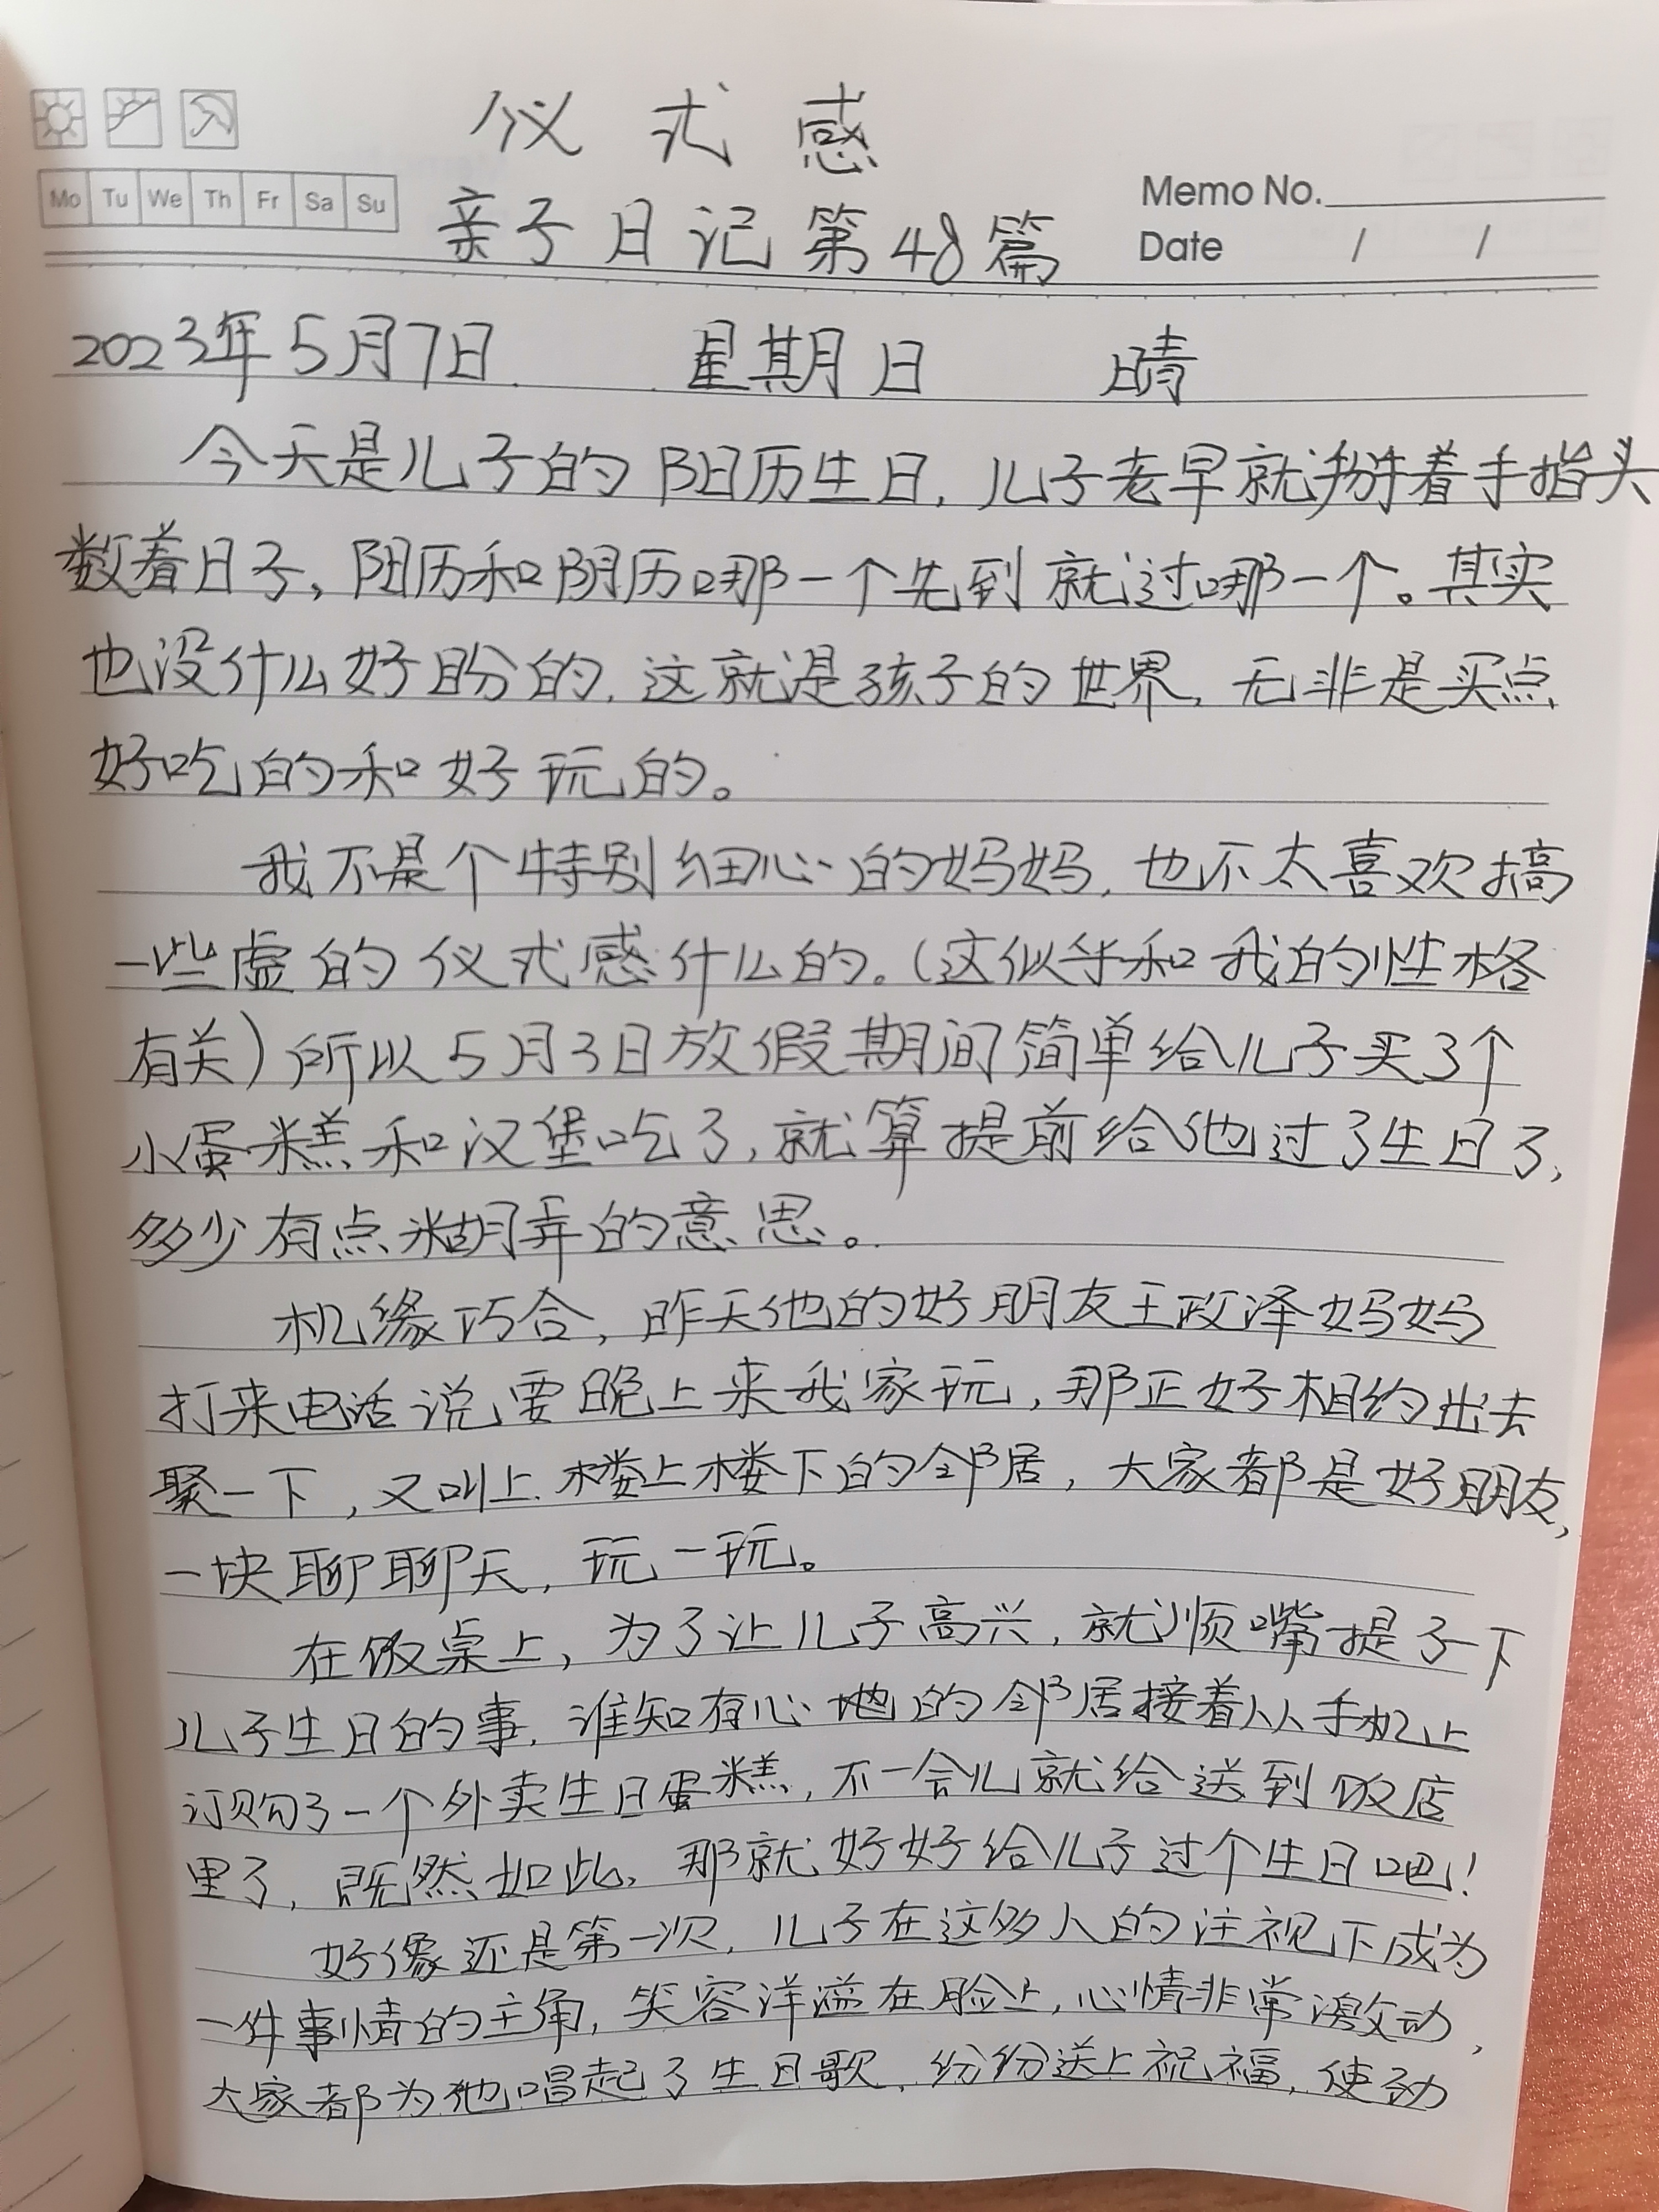 仪式感
Mo Tu We Th Fr Sa Su
亲子日记第48篇
Memo No.
Date / /
2023年5月7日 星期日 晴
今天是儿子的阳历生日,儿子老早就掰着手指头
数着日子,阳历和阴历哪一个先到就过哪一个。其实
也没什么好盼的,这就是孩子的世界,无非是买点
好吃的和好玩的。
我不是个特别细心的妈妈,也不太喜欢搞
一些虚的仪式感什么的。(这似乎和我的性格
有关)所以5月3日放假期间简单给儿子买3个
小蛋糕和汉堡吃了,就算提前给他过了生日了,
多少有点糊弄的意思。
机缘巧合,昨天他的好朋友王政泽妈妈
打来电话说要晚上来我家玩,那正好相约出去
聚一下,又叫上楼上楼下的邻居,大家都是好朋友,
一块聊聊天,玩一玩。
在饭桌上,为了让儿子高兴,就顺嘴提了一下
儿子生日的事,谁知有心地的邻居接着从手机上
订购了一个外卖生日蛋糕,不一会儿就给送到饭店
里了,既然如此,那就好好给儿子过个生日吧!
好像还是第一次,儿子在这多人的注视下成为
一件事情的主角,笑容洋溢在脸上,心情非常激动,
大家都为他唱起了生日歌,纷纷送上祝福,使劲